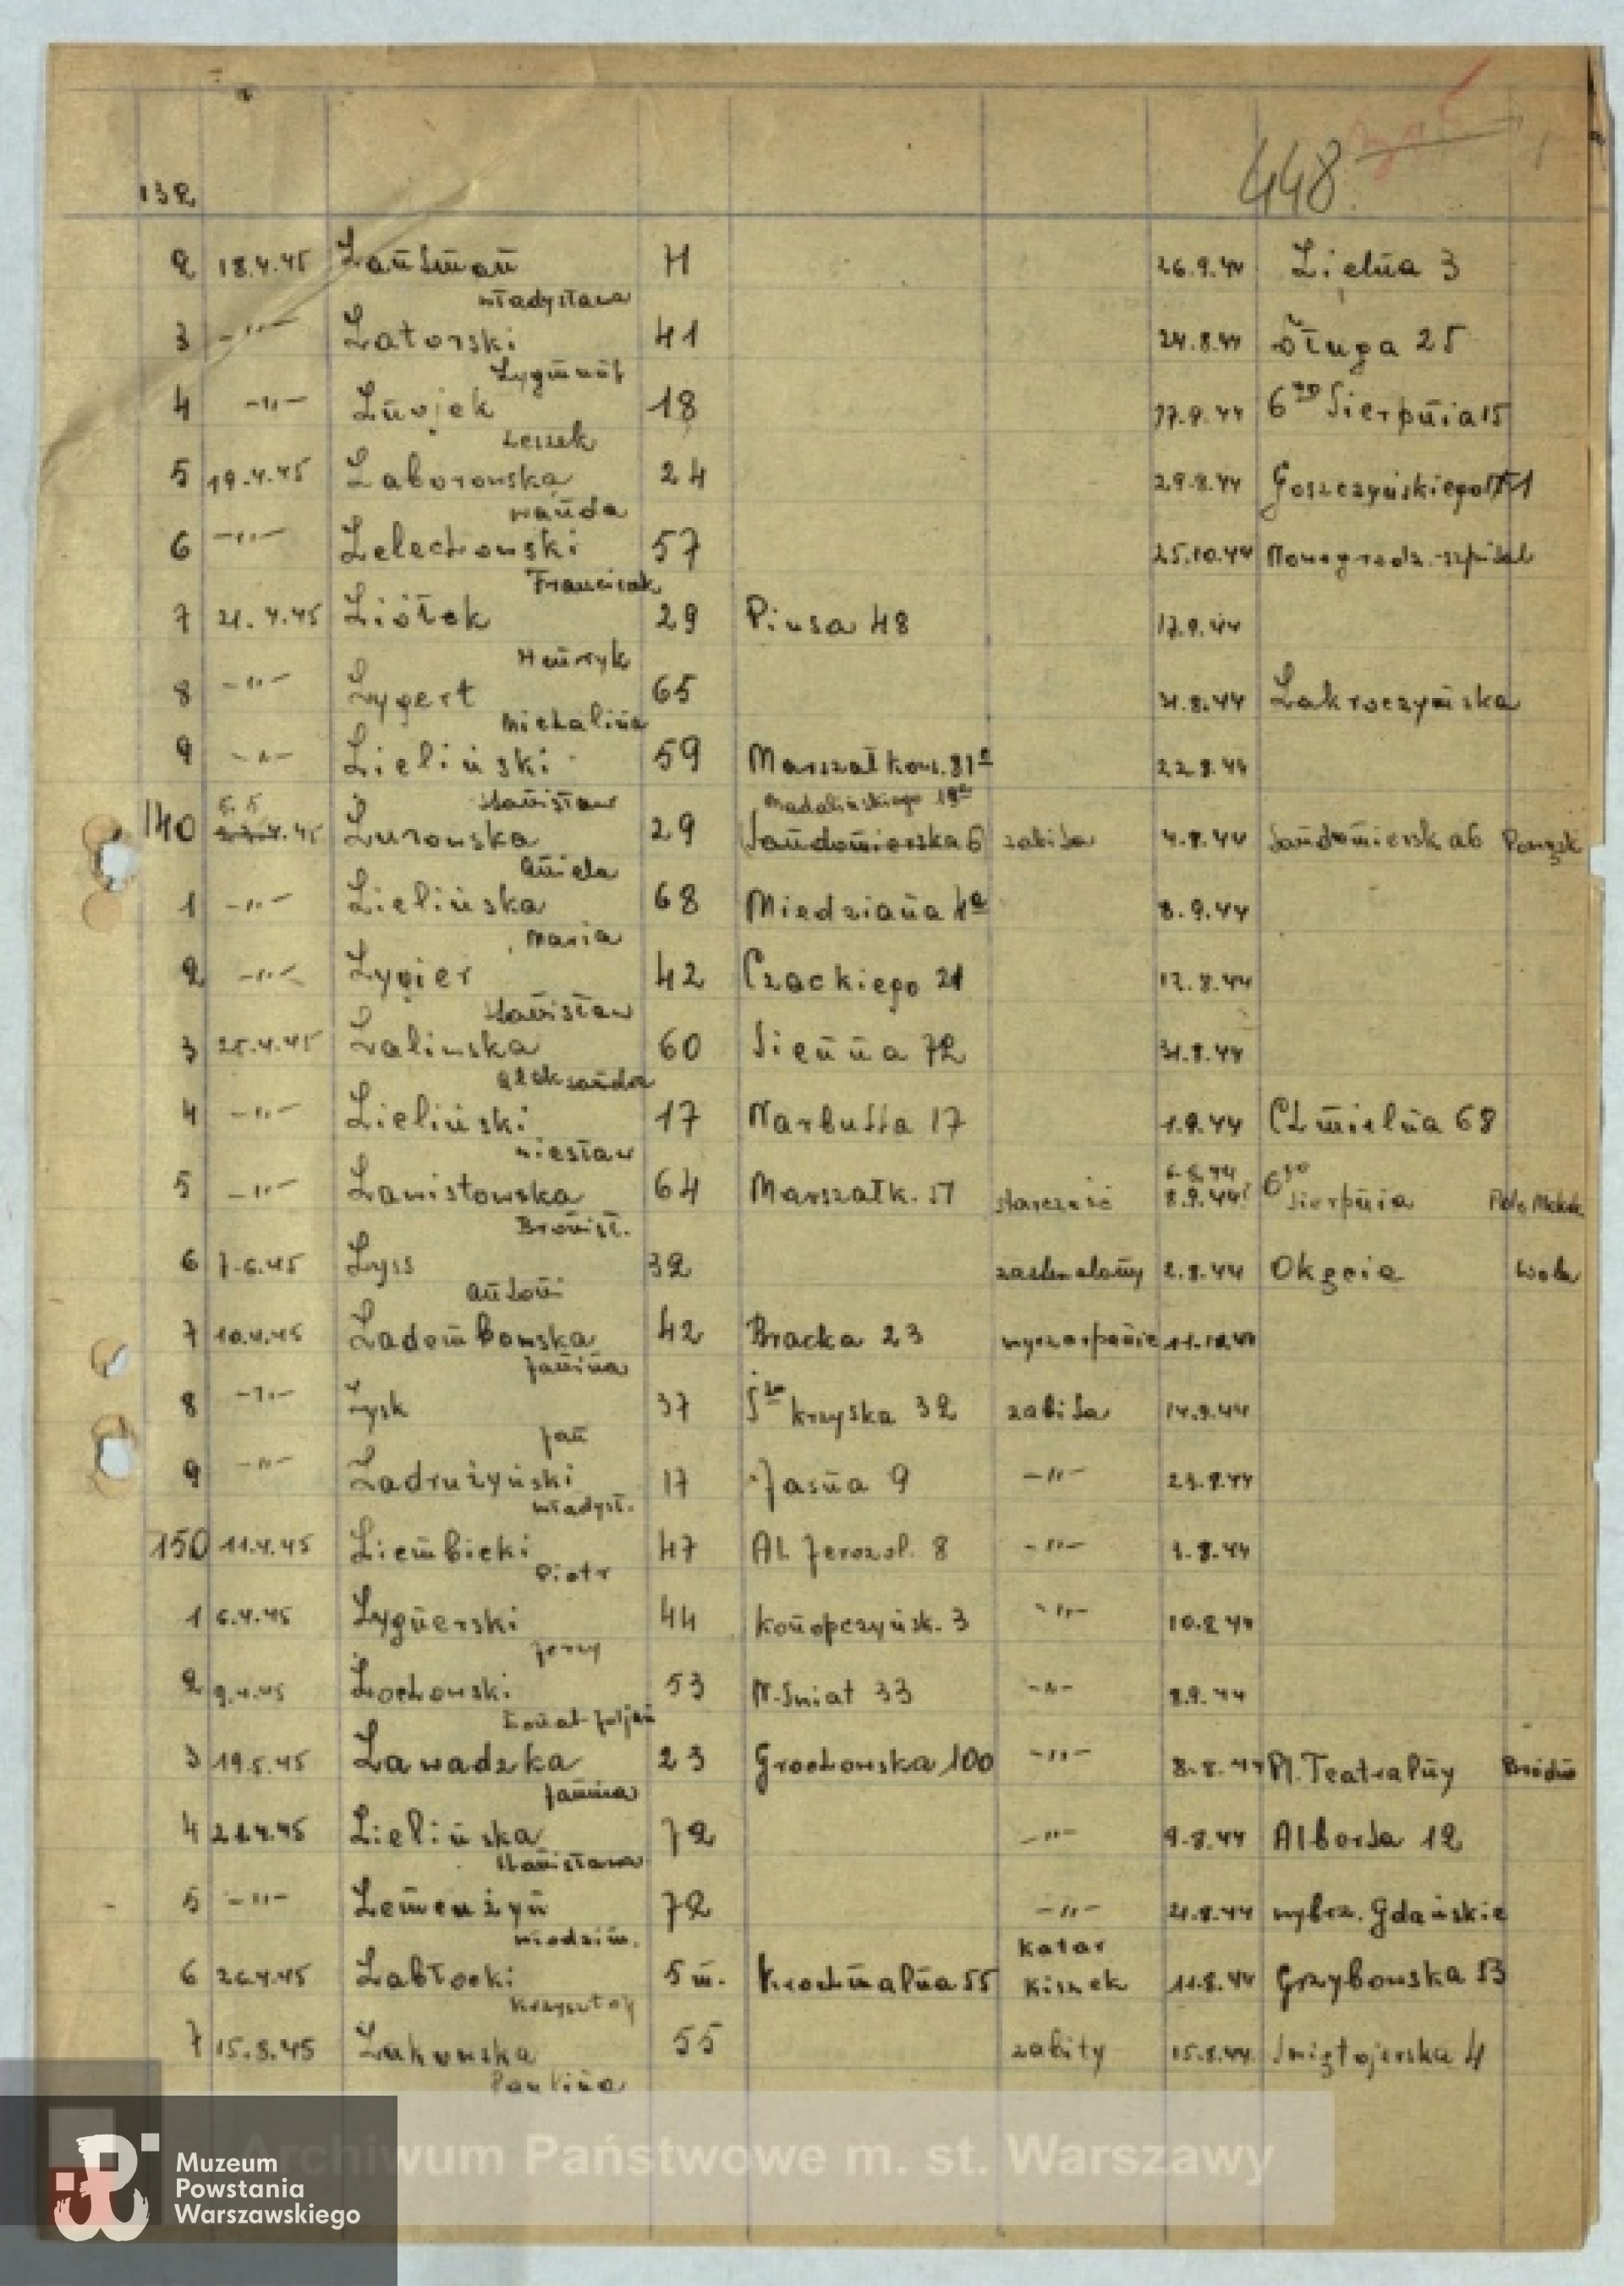 448
132
2 18.4.45 Zantman H 26.9.44 Zielna 3
Władysława
3 -"- Zatorski 41 24.8.44 Długa 25
Zygmunt
4 -"- Znojek 18 17.9.44 6go Sierpnia 15
Leszek
5 19.4.45 Zaborowska 24 29.8.44 Goszczyńskiego
Wanda
6 -"- Zelechowski 57 25.10.44 Nowogrodz.-szpital
Franciszek
7 21.4.45 Ziółek 29 Piusa 48 17.9.44
Henryk
8 -"- Zygert 65 31.8.44 Zakroczymska
Michalina
9 -"- Zieliński 59 Marszałkow. 81a 22.8.44
Stanisław Madalińskiego 19a
5.5
140 Żurowska 29 Sandomierska 6 zabita 4.8.44 Sandomierska 6 Powązk
Aniela
1 -"- Zielińska 68 Miedziana 4a 8.9.44
Maria
2 -"- Zygier 42 Czackiego 21 12.8.44
Stanisław
3 25.4.45 Zalinska 60 Sienna 72 31.8.44
Aleksandra
4 -"- Zieliński 17 Narbutta 17 1.9.44 Chmielna 68
Wiesław
5 -"- Zawistowska 64 Marszałk. 51 starczość 8.9.44 6go Sierpnia Pole Mokot
Bronisł.
6 7.6.45 Zyss 32 zastrzelony 2.8.44 Okęcie Wola
Antoni
7 10.4.45 Zadembowska 42 Bracka 23 wyczerpanie 11.10.44
Janina
8 -"- Żysk 37 Śto krzyska 32 zabita 14.9.44
Jan
9 -"- Zadrużyński 17 Jasna 9 -"- 23.9.44
Władysł.
150 11.4.45 Ziembicki 47 Al. Jerozol. 8 -"- 1.8.44
Piotr
1 6.4.45 Zygnerski 44 Konopczyńsk. 3 -"- 10.8.44
Jerzy
2 9.4.45 Żochowski 53 N. Świat 33 -"- 8.9.44
3 19.5.45 Zawadzka 23 Grochowska 100 -"- 8.8.44 Pl. Teatralny Bródno
Janina
4 21.4.45 Zielińska 72 -"- 9.8.44 Alberta 12
Stanisława
5 -"- Zemenżyn 72 -"- 21.8.44 wybrz. Gdańskie
Włodzim. katar
6 26.4.45 Zabłocki 5 m. Krochmalna 55 kiszek 11.8.44 Grzybowska 53
Krzysztof
7 15.3.45 Żukowska 55 zabity 15.8.44 Świętojerska 4
Paulina
Archiwum Państwowe m. st. Warszawy
Muzeum
Powstania
Warszawskiego